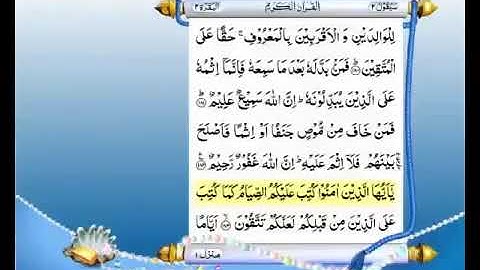 سَيَقُوْلُ ٢ اَلْقُرْاٰنُ الْكَرِيْمُ اَلْبَقَرَة ٢
لِلْوَالِدَيْنِ وَ الْاَقْرَبِيْنَ بِالْمَعْرُوْفِ ۚ حَقًّا عَلَى
الْمُتَّقِيْنَ ﴿١٨٠﴾ فَمَنْۢ بَدَّلَهٗ بَعْدَ مَا سَمِعَهٗ فَاِنَّمَاۤ اِثْمُهٗ
عَلَى الَّذِيْنَ يُبَدِّلُوْنَهٗ ؕ اِنَّ اللّٰهَ سَمِيْعٌ عَلِيْمٌ ﴿١٨١﴾
فَمَنْ خَافَ مِنْ مُّوْصٍ جَنَفًا اَوْ اِثْمًا فَاَصْلَحَ
بَيْنَهُمْ فَلَاۤ اِثْمَ عَلَيْهِ ؕ اِنَّ اللّٰهَ غَفُوْرٌ رَّحِيْمٌ ﴿١٨٢﴾
يٰۤاَيُّهَا الَّذِيْنَ اٰمَنُوْا كُتِبَ عَلَيْكُمُ الصِّيَامُ كَمَا كُتِبَ
عَلَى الَّذِيْنَ مِنْ قَبْلِكُمْ لَعَلَّكُمْ تَتَّقُوْنَ ﴿١٨٣﴾ اَيَّامًا
منزل ١